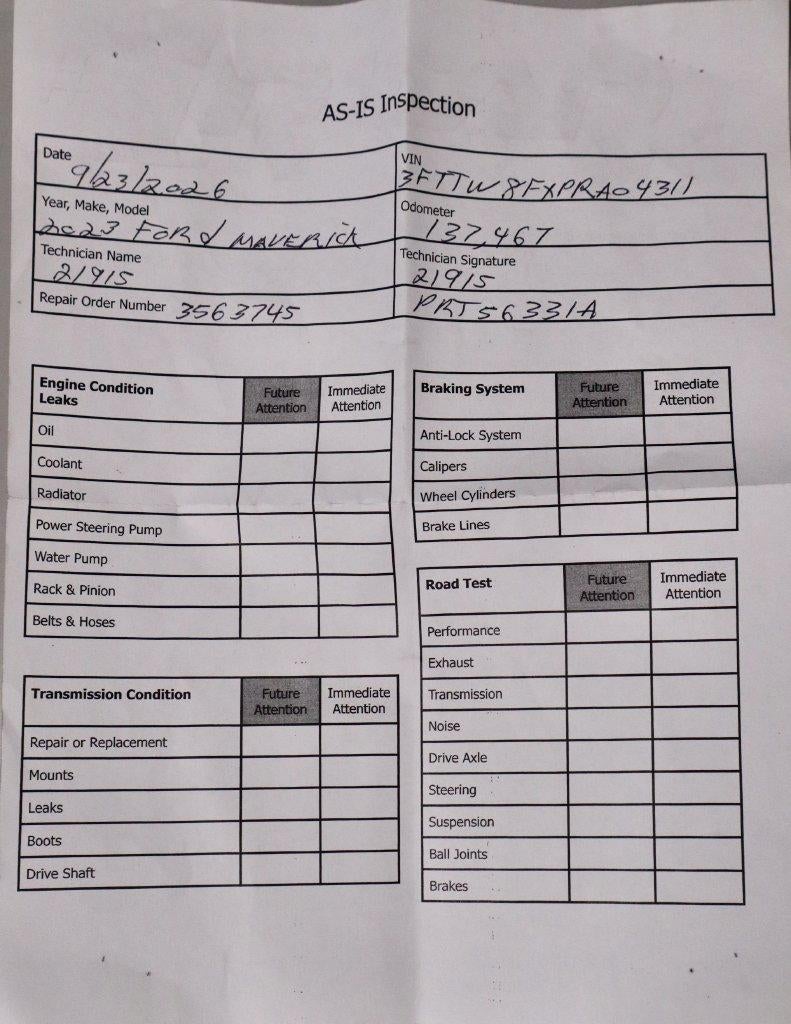 AS-IS Inspection
Date 9/23/2026
VIN 3FTTW8FXPRA04311
Year, Make, Model 2023 FORd MAVERick
Odometer 137,467
Technician Name 21915
Technician Signature 21915
Repair Order Number 3563745
PRT56331A
Engine Condition Leaks Future Attention Immediate Attention
Oil
Coolant
Radiator
Power Steering Pump
Water Pump
Rack & Pinion
Belts & Hoses
Transmission Condition Future Attention Immediate Attention
Repair or Replacement
Mounts
Leaks
Boots
Drive Shaft
Braking System Future Attention Immediate Attention
Anti-Lock System
Calipers
Wheel Cylinders
Brake Lines
Road Test Future Attention Immediate Attention
Performance
Exhaust
Transmission
Noise
Drive Axle
Steering
Suspension
Ball Joints
Brakes